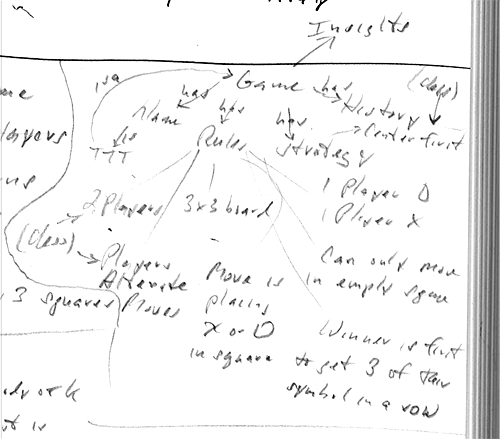 Insights
isa
Game
has
(class)
has
has
has
History
Name
is
TTT
Rules
Strategy
Center first
2 Players
3x3 board
1 Player O
1 Player X
(class)
Players
Alternate
Moves
Move is
placing
X or O
in square
Can only move
in empty square
Winner is first
to get 3 of their
symbol in a row
layers
3 squares